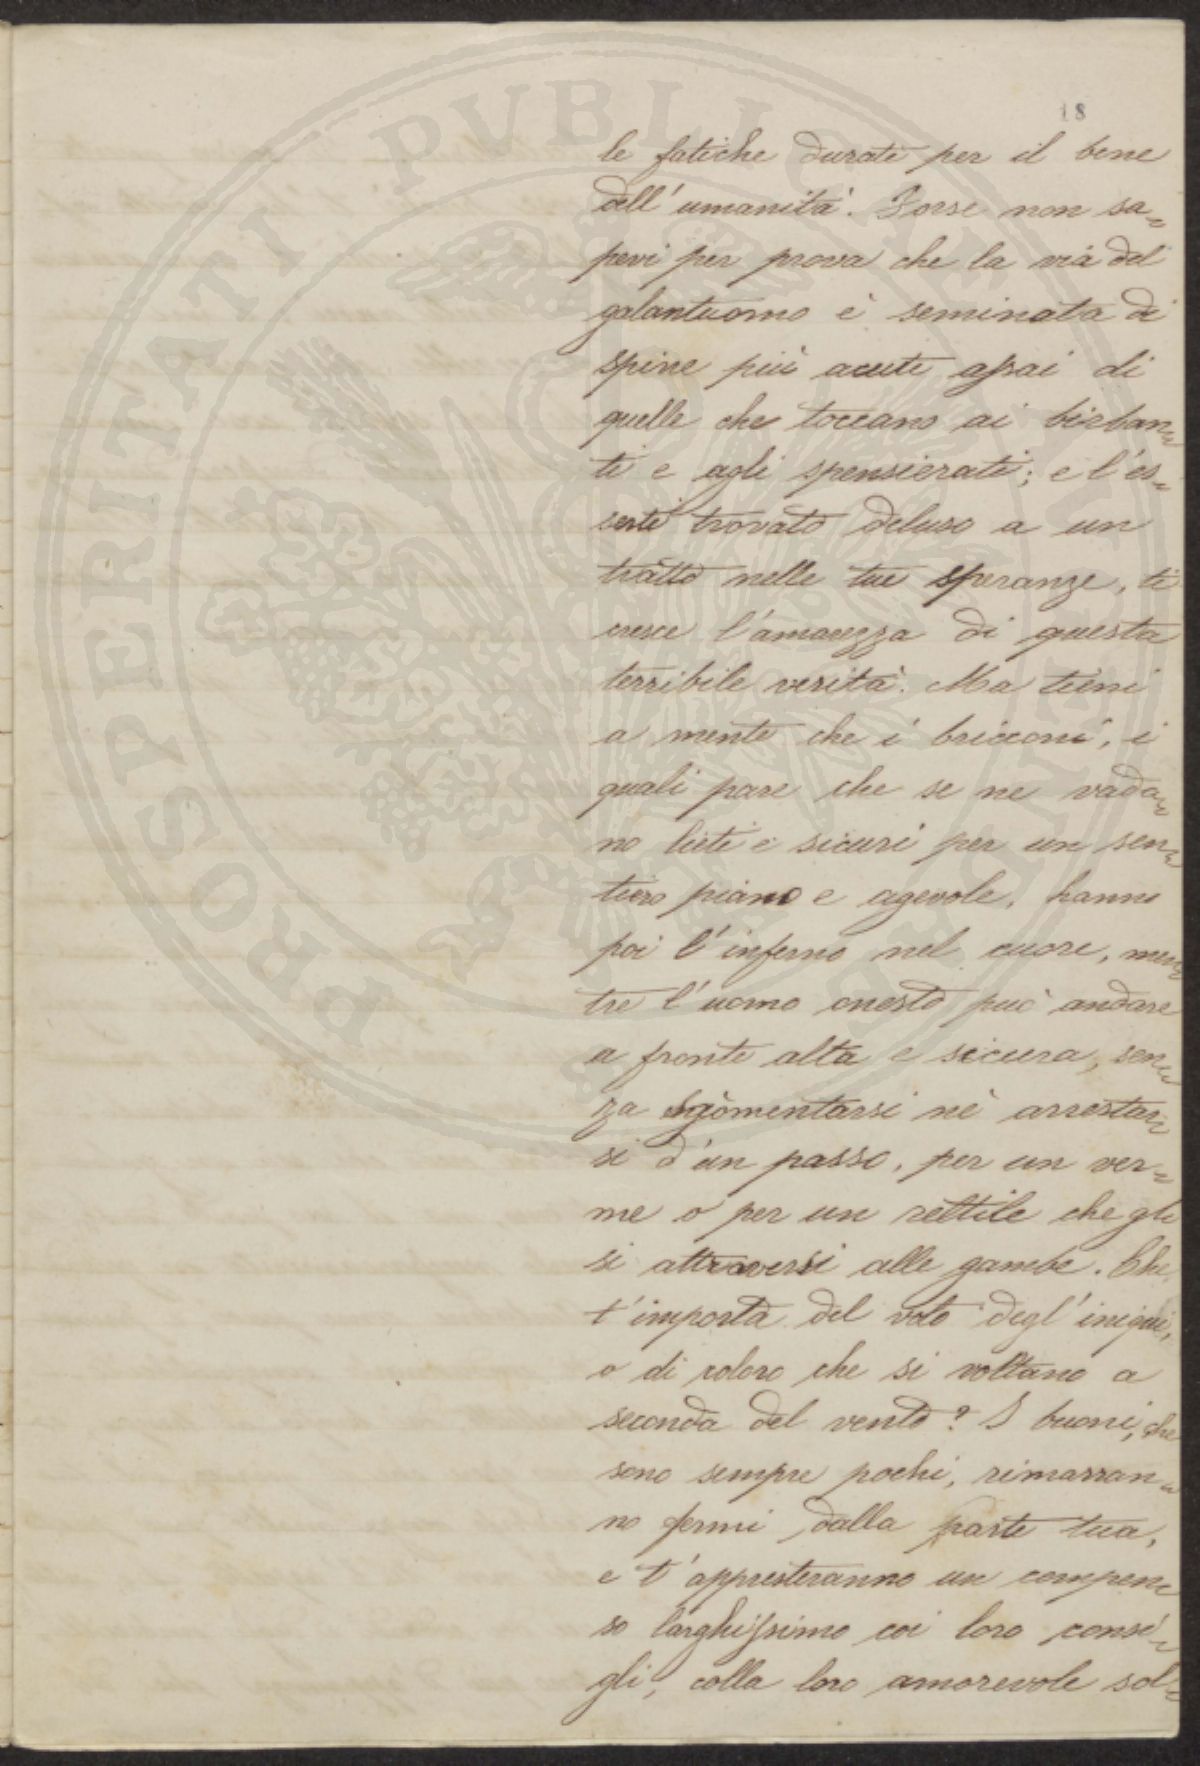 PROSPERITATI PUBLICAE
18
le fatiche durate per il bene
dell'umanità. Forse non sa=
pevi per prova che la via del
galantuomo è seminata di
spine più acute assai di
quelle che toccano ai birban=
ti e agli spensierati; e l'es=
serti trovato deluso a un
tratto nelle tue speranze, ti
cresce l'amarezza di questa
terribile verità. Ma tieni
a mente che i bricconi, i
quali pare che se ne vada=
no lieti e sicuri per un sen=
tiero piano e agevole, hanno
poi l'inferno nel cuore, men=
tre l'uomo onesto può andare
a fronte alta e sicura, sen=
za sgomentarsi nè arrestar=
si d'un passo, per un ver=
me o per un rettile che gli
si attraversi alle gambe. Che
t'importa del voto degl'iniqui,
o di coloro che si voltano a
seconda del vento? I buoni, che
sono sempre pochi, rimarran=
no fermi dalla parte tua,
e t'appresteranno un compen=
so larghissimo coi loro consi=
gli, colla loro amorevole sol=